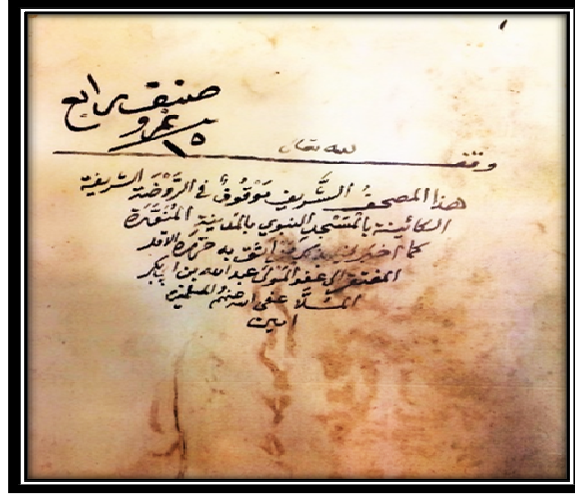 صندوق رابع
نمرو
١٥
وقف لله تعالى
هذا المصحف الشريف موقوف في الروضة الشريفة
الكائنة بالمسجد النبوي بالمدينة المنورة
كما اخبرني بذلك من اثق به حرره الاقل
المفتقر الى عفو المولى عبدالله بن ابي بكر
الملا عفى الله عنهم والمسلمين
امين